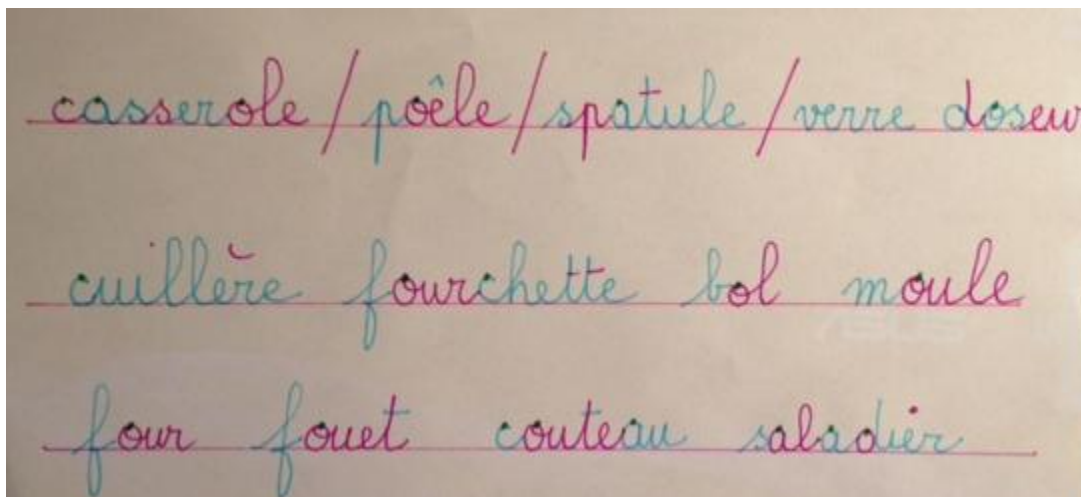 casserole / poêle / spatule / verre doseur
cuillère fourchette bol moule
four fouet couteau saladier